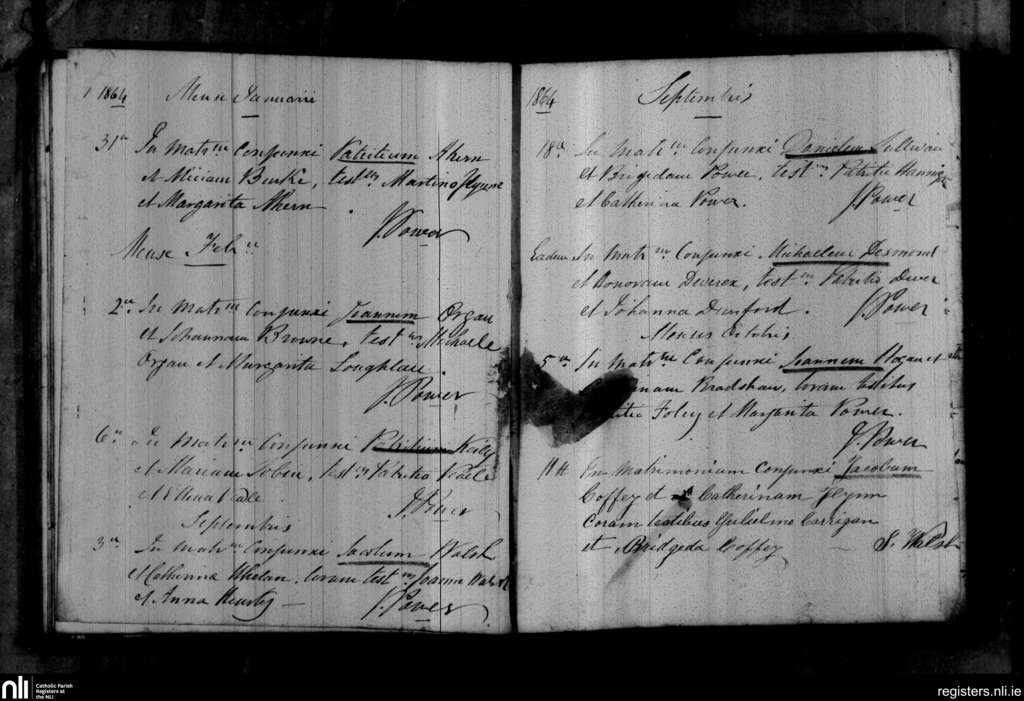 1864 Mense Januarii
31a In Matrm Conjunxi Patritium Ahern
et Miriam Burke, testus Martino Flynne
et Margarita Ahern
J. Power
Mense Feb
2a In Matrm Conjunxi Joannem Organ
et Johannam Browne, test Michaele
Organ et Margarita Loughlan.
J. Power
6a In Matrm Conjunxi Patritium Kiely
et Mariam Tobin, test Patritio
J. Power
Septembris
3a In Matrm Conjunxi Jacobum Walsh
et Catherina Whelan, coram test Joanne Walsh
et Anna
J. Power
1864 Septembris
18a In Matrm Conjunxi Danielem Sullivan
et Brigidam Power, test Patritio
et Catherina Power.
J. Power
Eadem In Matrm Conjunxi Michaelem Desmond
et Honoram Deverex, test Patritio Dever
et Johanna Dunford.
J. Power
Mensis Octobris
5a In Matrm Conjunxi Joannem Hogan et
nam Bradshaw, coram testibus
Foley et Margarita Power.
J. Power
18th In Matrimonium Conjunxi Jacobum
Coffey et Catherinam Flynn
Coram testibus Gulielmo Carrigan
et Bridgeda Coffey — S. Walsh
nli Catholic Parish
Registers at
the NLI
registers.nli.ie